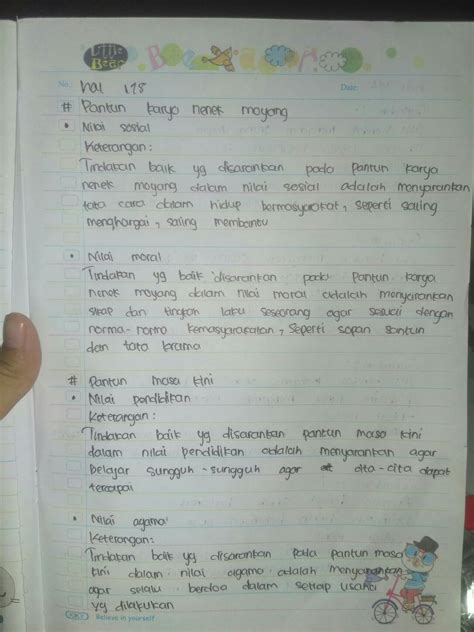 Little Bear
No.: hal 178 Date:
# Pantun karya nenek moyang
• Nilai sosial
Keterangan:
Tindakan baik yg disarankan pada pantun karya
nenek moyang dalam nilai sosial adalah menyarankan
tata cara dalam hidup bermasyarakat, seperti saling
menghargai, saling membantu
• Nilai moral
Tindakan yg baik disarankan pada pantun karya
nenek moyang dalam nilai moral adalah menyarankan
sikap dan tingkah laku seseorang agar sesuai dengan
norma-norma kemasyarakatan, seperti sopan santun
dan tata krama
# Pantun masa kini
• Nilai pendidikan
Keterangan:
Tindakan baik yg disarankan pantun masa kini
dalam nilai pendidikan adalah menyarankan agar
belajar sungguh-sungguh agar cita-cita dapat
tercapai
• Nilai agama
Keterangan:
Tindakan baik yg disarankan pada pantun masa
kini dalam nilai agama adalah menyarankan
agar selalu berdoa dalam setiap usaha
yg dilakukan
Believe in yourself